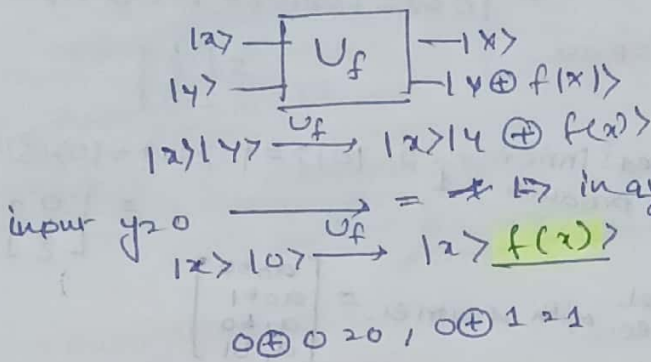 |x> U_f |x>
|y> |y ⊕ f(x)>
|x>|y> U_f → |x>|y ⊕ f(x)>
input y=0 → =
|x>|0> U_f → |x> f(x)>
0⊕0=0, 0⊕1=1